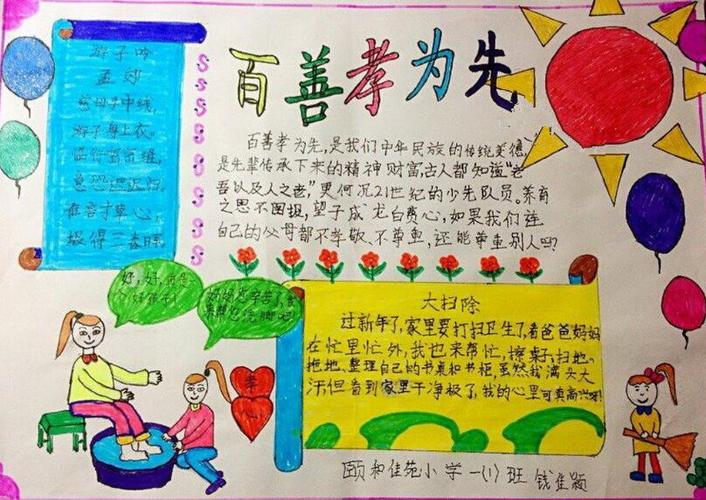 百善孝为先
游子吟
孟郊
慈母手中线,
游子身上衣。
临行密密缝,
意恐迟迟归。
谁言寸草心,
报得三春晖。
百善孝为先,是我们中华民族的传统美德,
是先辈传承下来的精神财富古人都知道"老
吾以及人之老",更何况21世纪的少先队员。养育
之恩不图报,望子成龙白费心,如果我们连
自己的父母都不孝敬、不尊重,还能尊重别人吗?
好,好,真是
个好孩子!
妈妈您辛苦了,我
来帮您洗脚吧!
孝
心
大扫除
过新年了,家里要打扫卫生了,看爸爸妈妈
在忙里忙外,我也来帮忙,擦桌子扫地、
拖地、整理自己的书桌和书柜,虽然我满头大
汗,但看到家里干净极了,我的心里可真高兴呀!
颐和佳苑小学一(1)班 钱佳颖